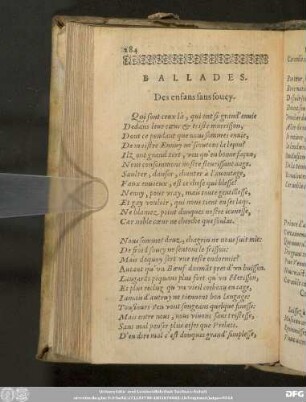 284
BALLADES.
Des enfans sans soucy.
Qui sont ceux là, qui ont si grand enuie
Dedans leur cœur & triste marrisson,
Dont ce pendant que nous sommes en vie,
De maistre Ennuy n'escoutons la leçon?
Ilz ont grand tort, veu qu'en bonne façon,
Nous consommons nostre fleurissant aage.
Saulter, danser, chanter à l'auantage,
Faux enuieux, est-ce chose qui blesse?
Nenny, pour vray, mais toute gentillesse,
Et gay vouloir, qui nous tient en ses laqs.
Ne blasmez point doncques nostre ieunesse,
Car noble cœur ne cherche que soulas.
Nous sommes druz, chagrin ne nous suit mie:
De froid soucy ne sentons le frisson:
Mais dequoy sert vne teste endormie?
Autant qu'vn Bœuf dormant pres d'vn buisson.
Languards piquans plus fort qu'vn Herisson,
Et plus recluz qu'vn vieil corbeau en cage,
Iamais d'autruy ne tiennent bon langage:
Tousiours s'en vont songeans quelque finesse:
Mais entre nous, nous viuons sans tristesse,
Sans mal penser, plus aises que Prelats.
D'en dire mal c'est doncques grand' simplesse,